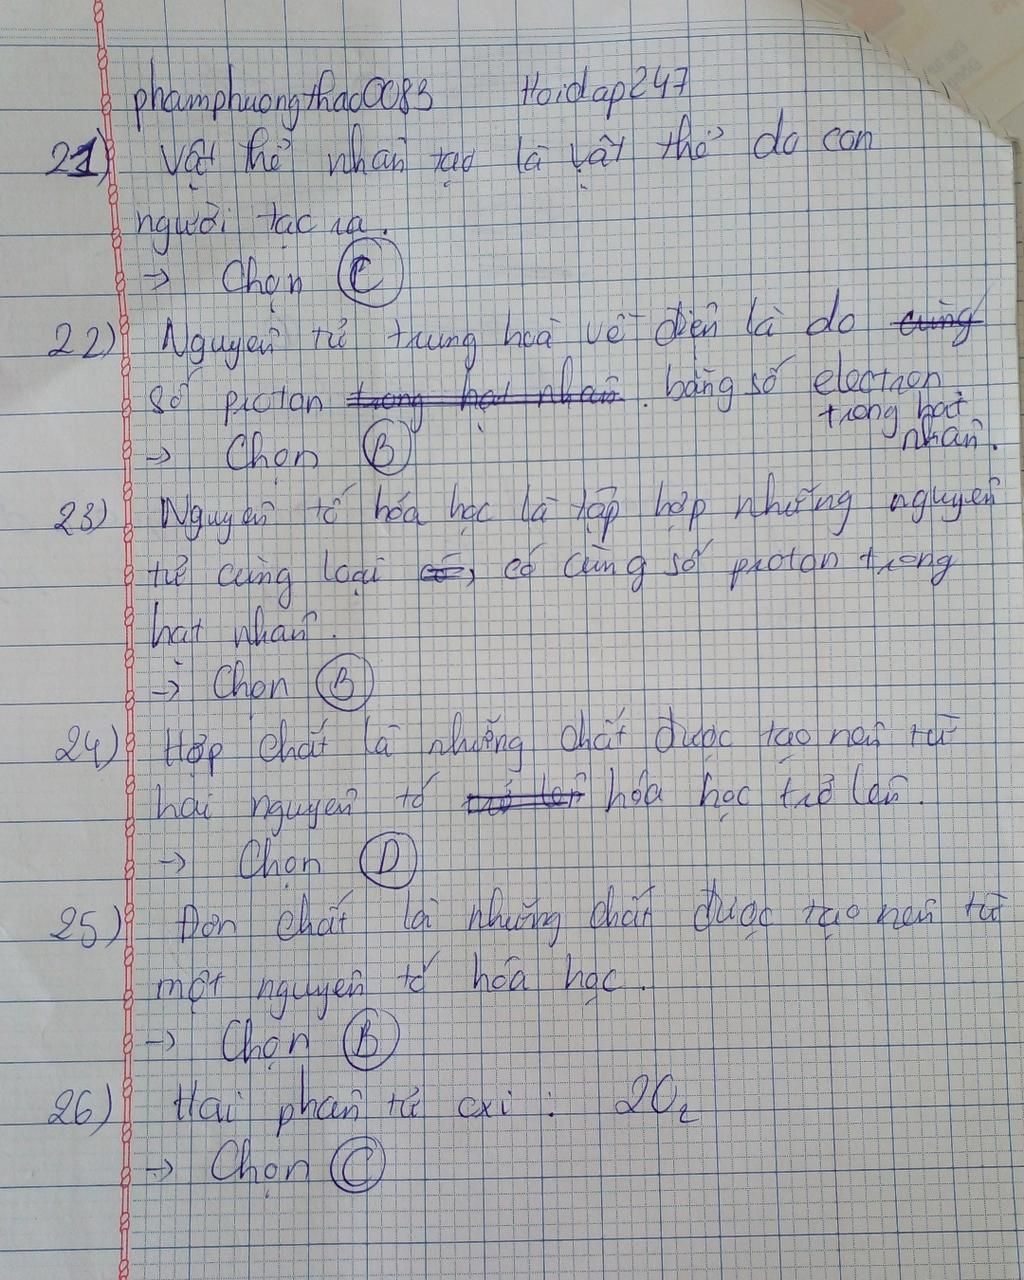 phamphuongthao0083 Hoidap247
21) Vật thể nhân tạo là vật thể do con
người tạo ra.
→ Chọn C
22) Nguyên tử trung hoà về điện là do cùng
số proton trong hạt nhân. bằng số electron
trong hạt
nhân.
→ Chọn B
23) Nguyên tố hóa học là tập hợp những nguyên
tử cùng loại có, có cùng số proton trong
hạt nhân.
→ Chọn B
24) Hợp chất là những chất được tạo nên từ
hai nguyên tố trở lên hóa học trở lên.
→ Chọn D
25) Đơn chất là những chất được tạo nên từ
một nguyên tố hóa học.
→ Chọn B
26) Hai phân tử oxi : 2O₂
→ Chọn C